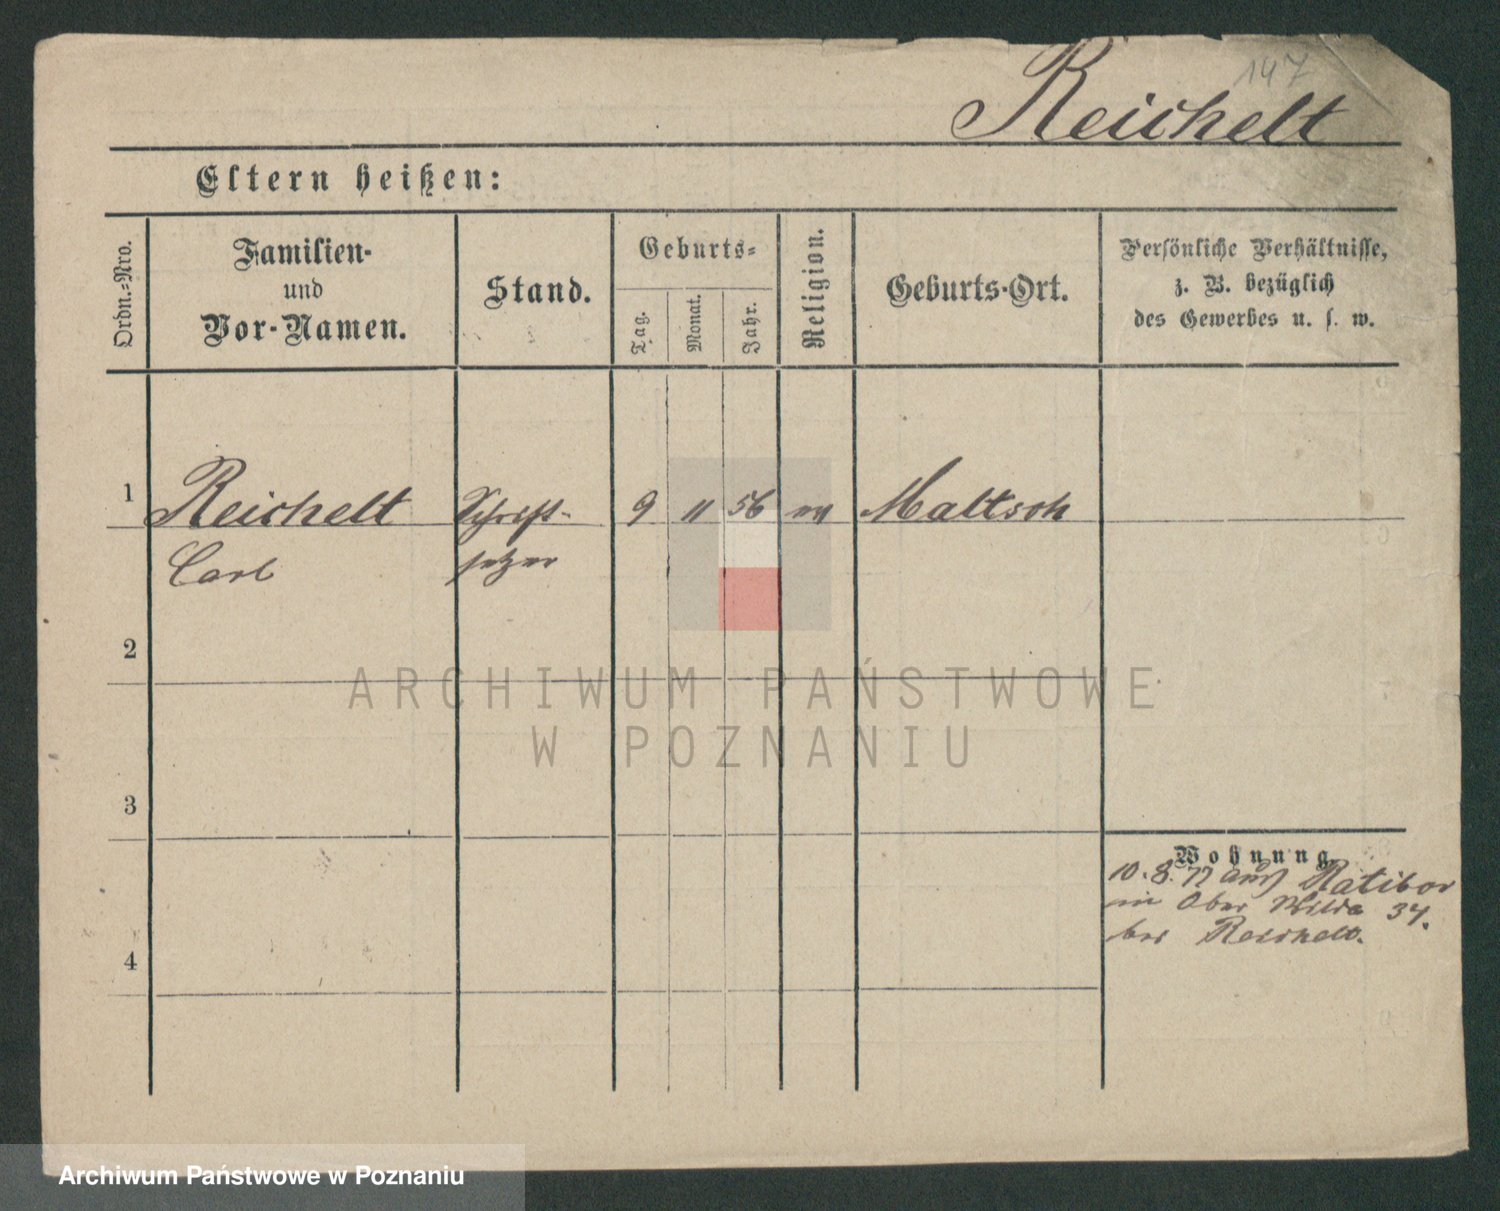 147
Reichelt
Eltern heißen:
Ordn.-Nro.
Familien-
und
Vor-Namen.
Stand.
Geburts-
Tag.
Monat.
Jahr.
Religion.
Geburts-Ort.
Persönliche Verhältnisse,
z. B. bezüglich
des Gewerbes u. s. w.
1 Reichelt Schrift- 9 11 56 ev Maltsch
Carl setzer
2
3
4
Wohnung
10. 8. 77 aus Ratibor
in Ober Wilda 34.
bei Reichelt.
ARCHIWUM PAŃSTWOWE
W POZNANIU
Archiwum Państwowe w Poznaniu